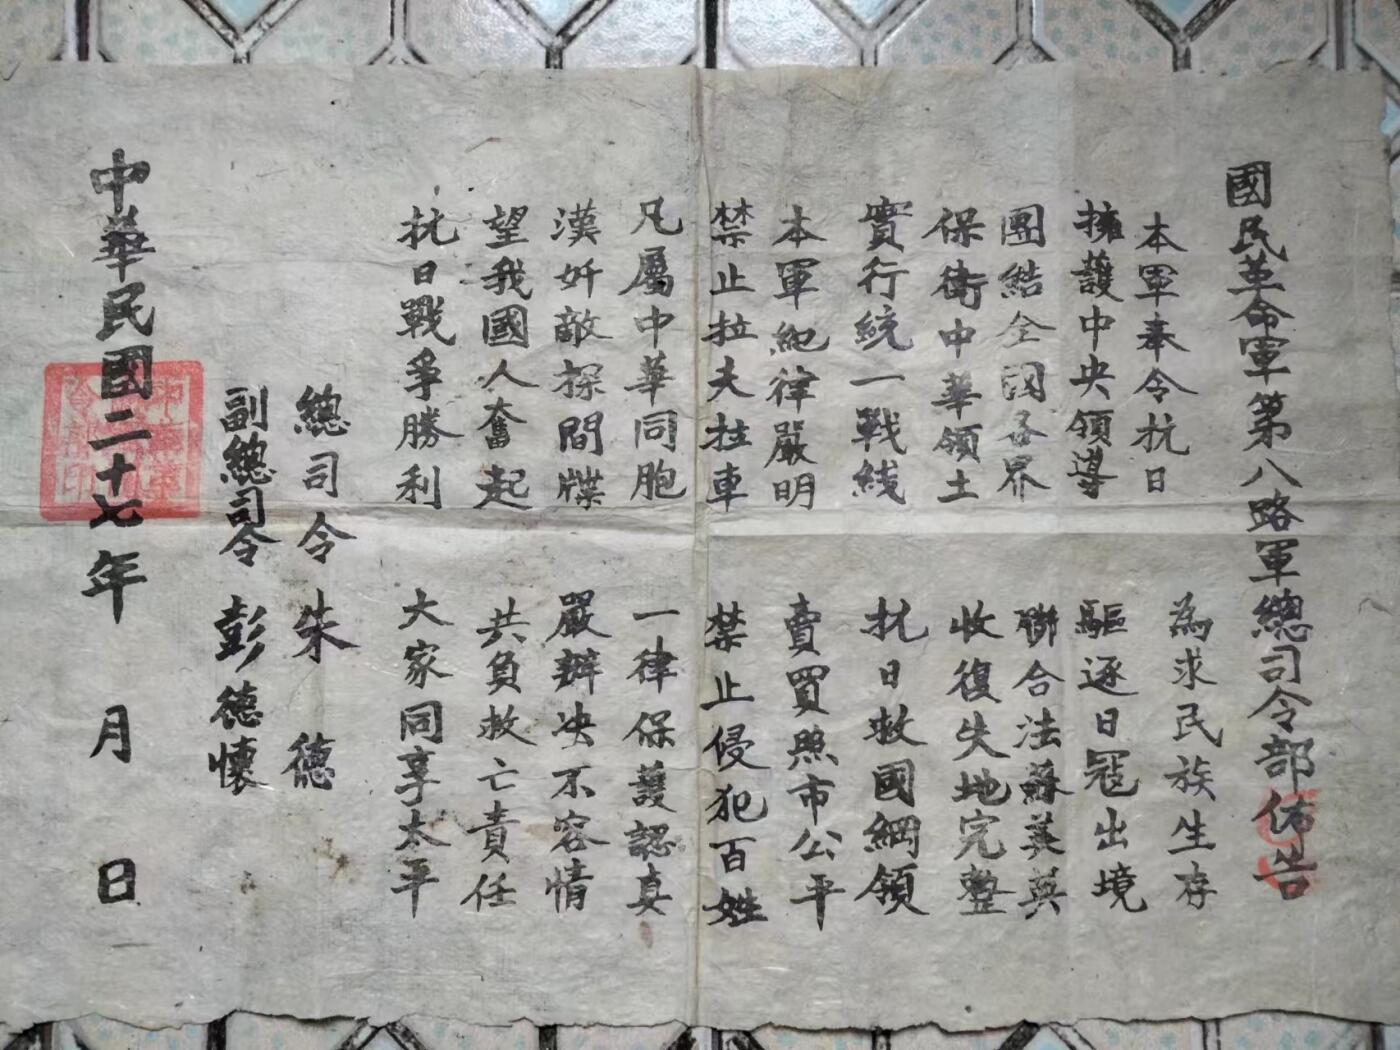 國民革命軍第八路軍總司令部佈告
本軍奉令抗日　為求民族生存
擁護中央領導　驅逐日寇出境
團結全國各界　聯合法蘇美英
保衛中華領土　收復失地完整
實行統一戰线　抗日救國綱領
本軍紀律嚴明　賣買照市公平
禁止拉夫拉車　禁止侵犯百姓
凡屬中華同胞　一律保護認真
漢奸敵探間牒　嚴辦决不容情
望我國人奮起　共負救亡責任
抗日戰爭勝利　大家同享太平
總司令　朱德
副總司令　彭德懷
中華民國二十七年　月　日